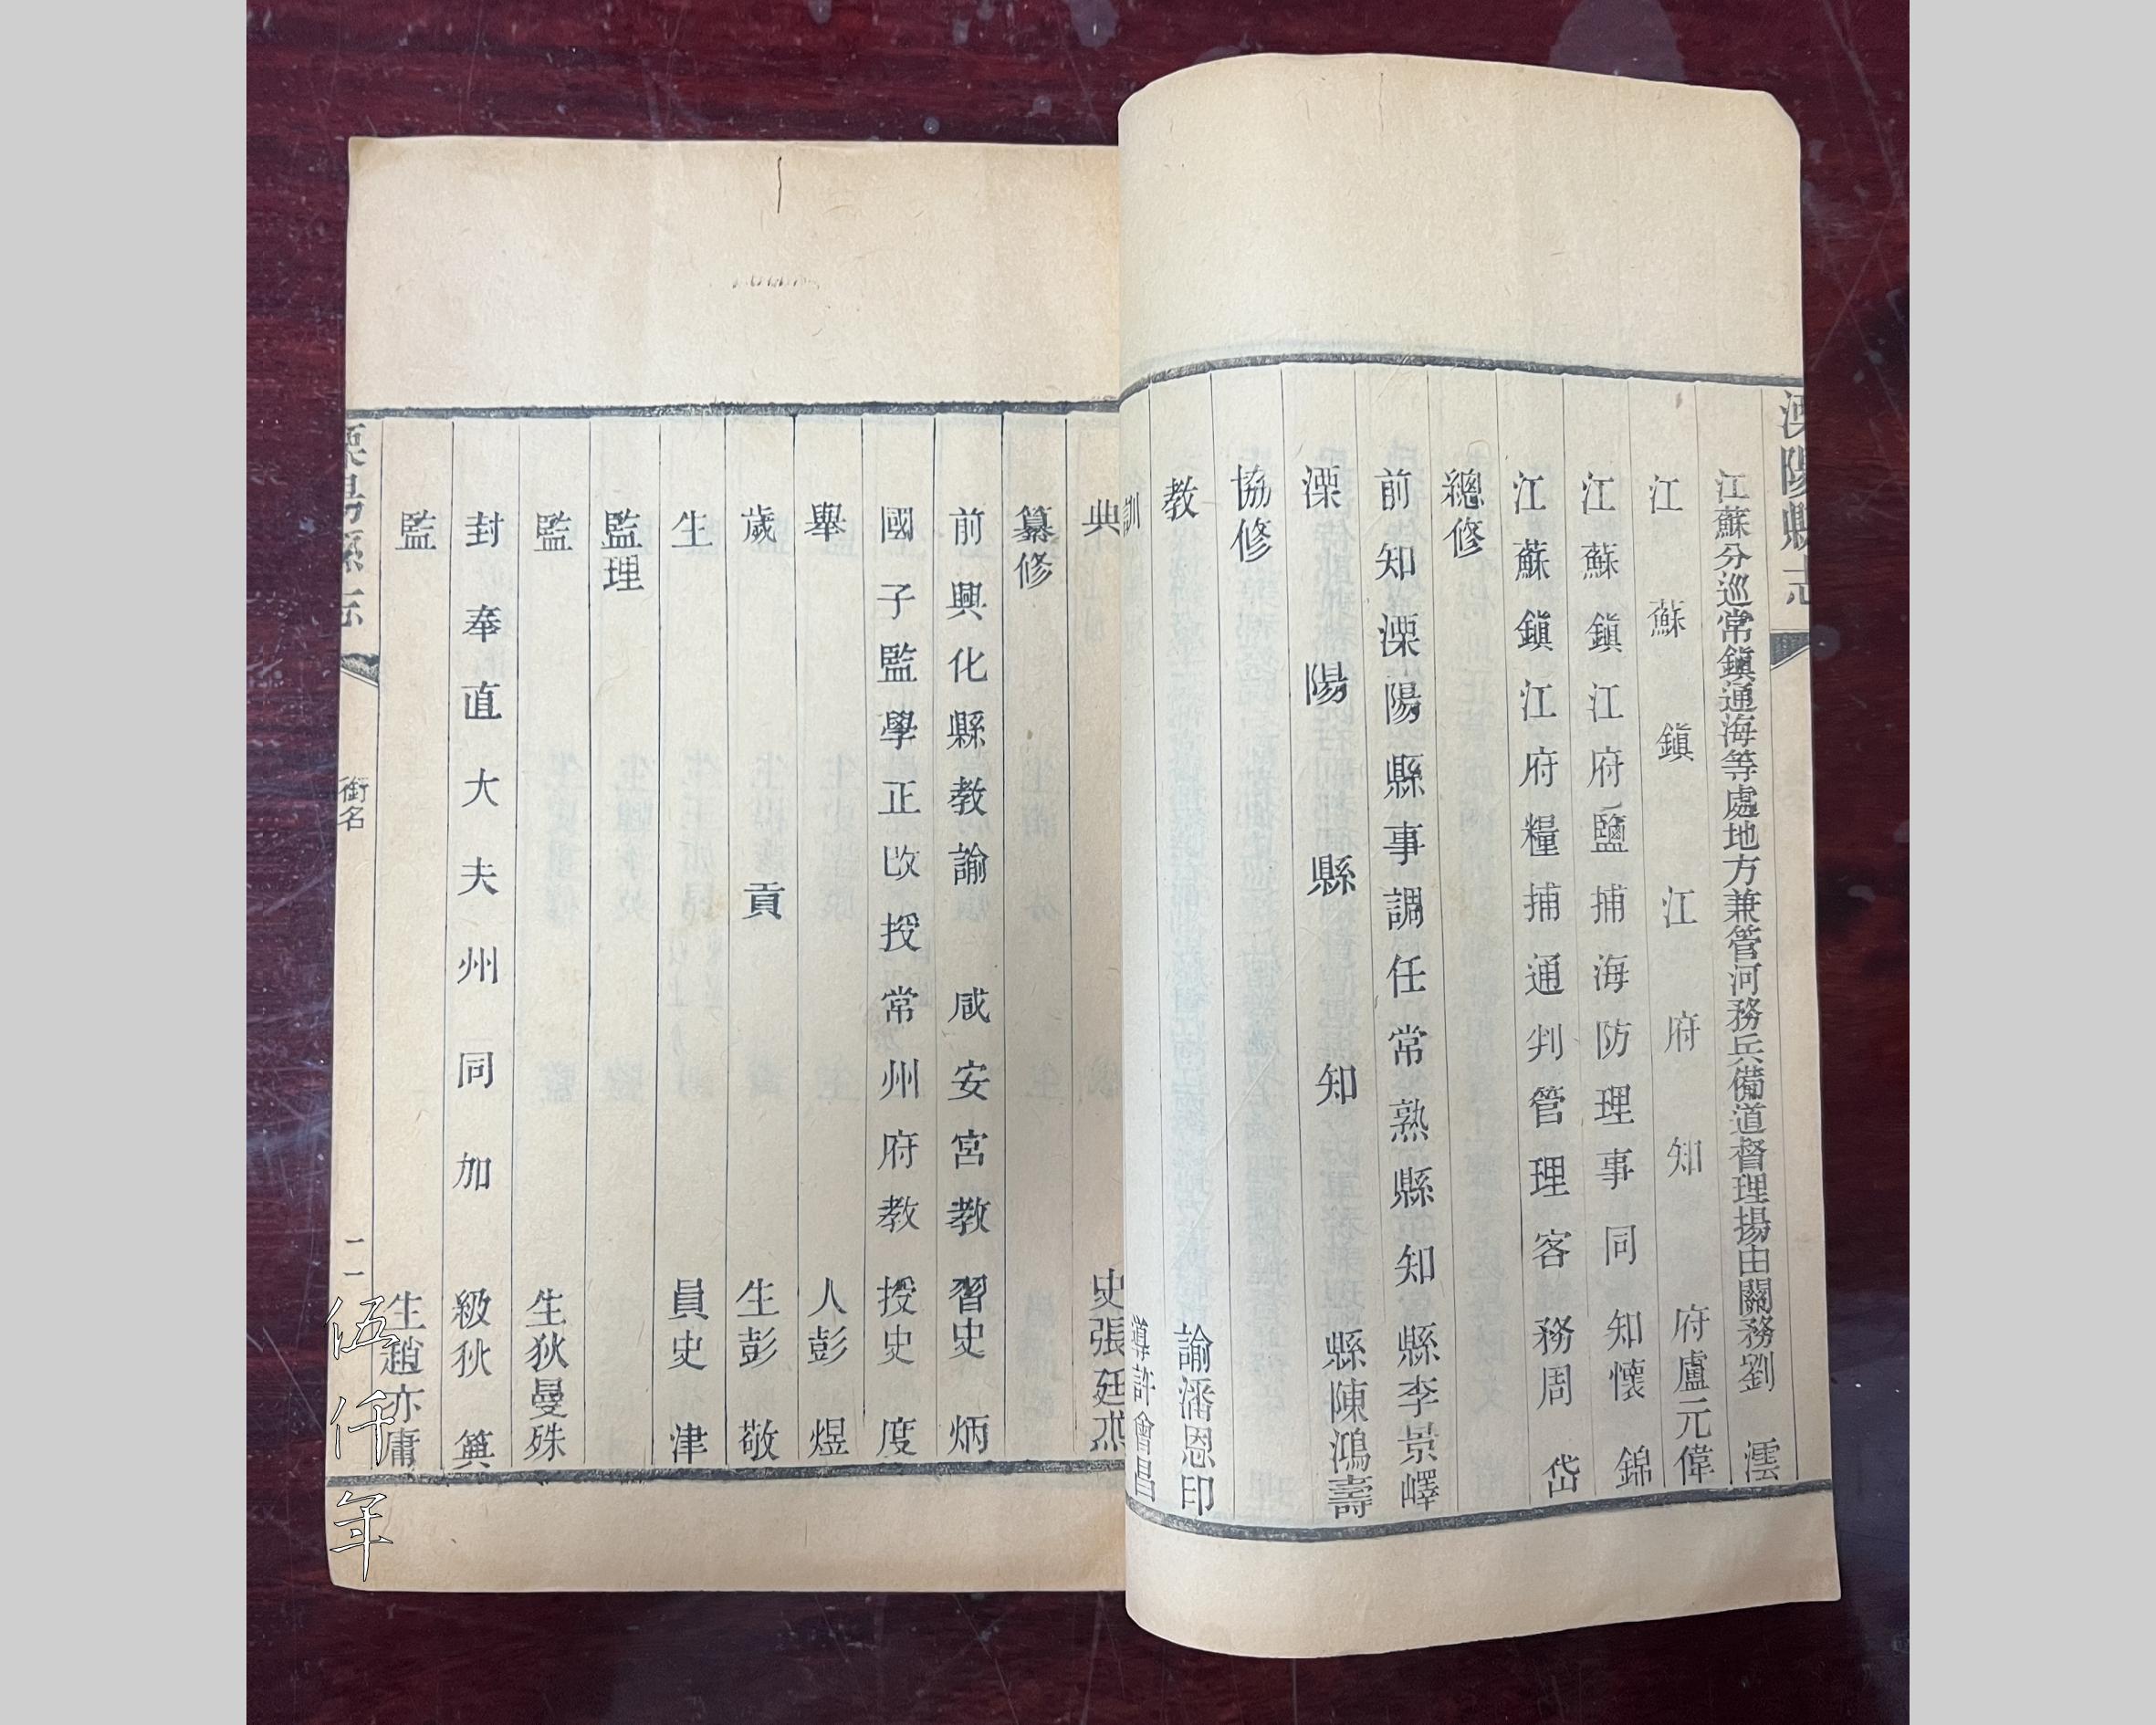 溧陽縣志
江蘇分巡常鎭通海等處地方兼管河務兵備道督理揚由關務劉澐
江蘇鎭江府知府盧元偉
江蘇鎭江府鹽捕海防理事同知懷錦
江蘇鎭江府糧捕通判管理客務周岱
總修
前知溧陽縣事調任常熟縣知縣李景嶧
溧陽縣知縣陳鴻壽
協修
教諭潘恩印
訓導許會昌
典史張廷杰
纂修
前興化縣教諭咸安宮教習史炳
國子監學正改授常州府教授史度
舉人彭煜
歲貢生彭敬
生員史津
監理
監生狄曼殊
封奉直大夫州同加級狄簨
監生趙亦庸
溧陽縣志
銜名
二
伍仟年